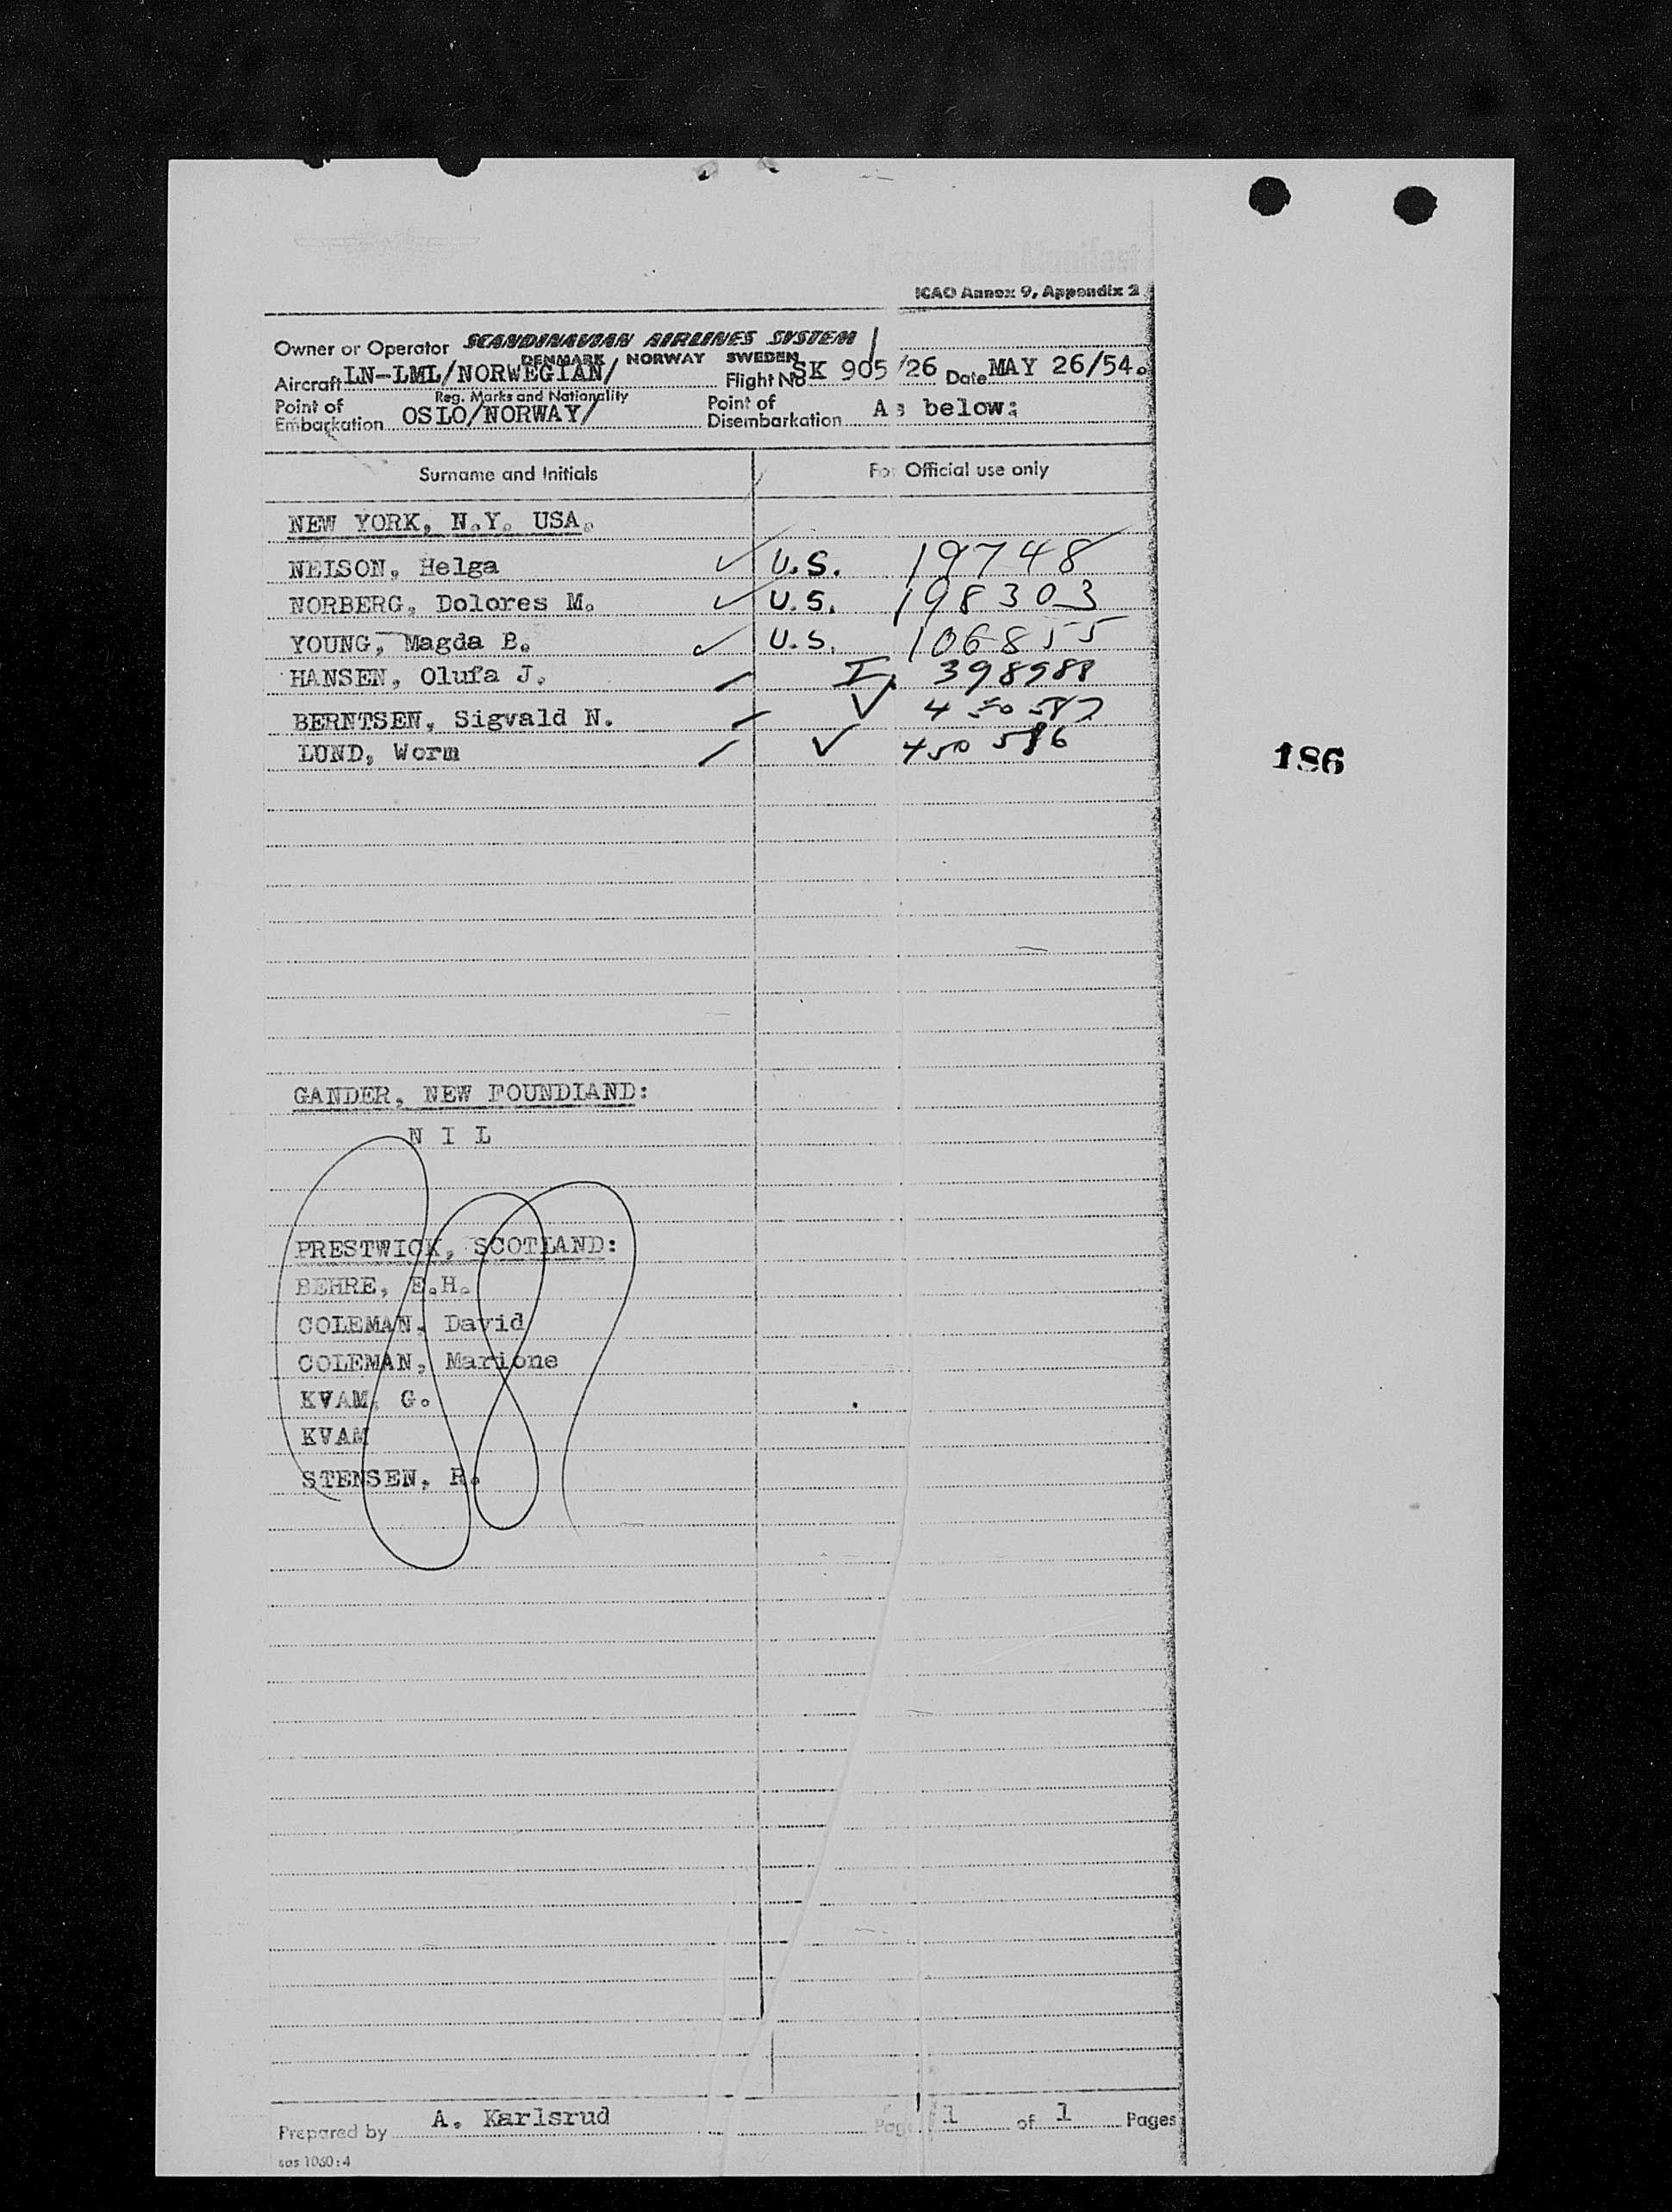 ICAO Annex 9, Appendix 2
Owner or Operator SCANDINAVIAN AIRLINES SYSTEM
DENMARK NORWAY SWEDEN
Aircraft LN-LML/NORWEGIAN/ Flight No SK 905/26 Date MAY 26/54.
Reg. Marks and Nationality
Point of Embarkation OSLO/NORWAY/ Point of Disembarkation As below:
Surname and Initials For Official use only
NEW YORK, N.Y. USA.
NELSON, Helga ✓ U.S. 19748
NORBERG, Dolores M. ✓ U.S. 198303
YOUNG, Magda B. ✓ U.S. 106855
HANSEN, Olufa J. I, 398988
BERNTSEN, Sigvald N. ✓ 450587
LUND, Worm ✓ 450586
186
GANDER, NEW FOUNDLAND:
N I L
PRESTWICK, SCOTLAND:
BEHRE, E.H.
COLEMAN, David
COLEMAN, Marione
KVAM, G.
KVAM
STENSEN, R.
Prepared by A. Karlsrud Page 1 of 1 Pages
sas 1060:4